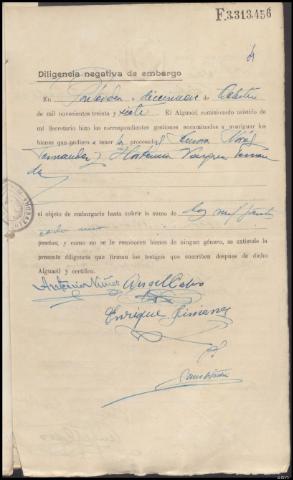 F.3313.456
Diligencia negativa de embargo
En Pontevedra a diecinueve de Octubre
de mil novecientos treinta y siete. El Alguacil comisionado asistido de
mi Secretario hizo las correspondientes gestiones encaminadas a averiguar los
bienes que pudiera tener
Fernandez y Hortensia Vazquez
al objeto de embargarle hasta cubrir la suma de dos mil
cada uno
pesetas, y como no se le conocieren bienes de ningún género, se extiende la
presente diligencia que firman los testigos que suscriben después de dicho
Alguacil y certifico.
Antonio Núñez Angel Calvo
Enrique Jimenez